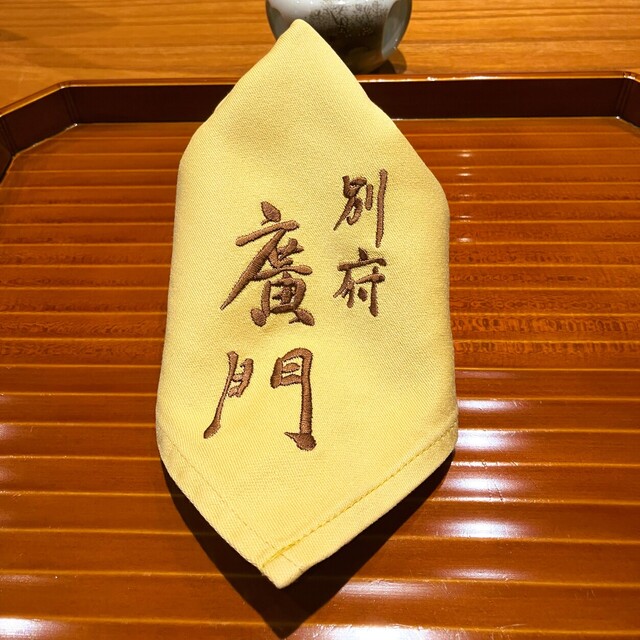 別府
廣門